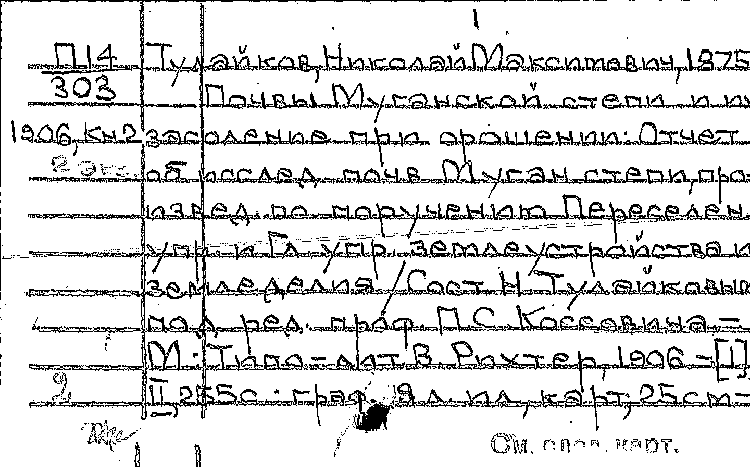 1
П14 Тулайков, Николай Максимович, 1875
303 Почвы Муганской степи и их
1906, кн2 засоление при орошении: Отчет
2 экз. об исслед. почв Муган степи, про-
извед. по поручению Переселен
упр. и Гл. упр. землеустройства и
земледелия / Сост Н Тулайковым
под ред. проф П. С. Коссовича. –
М: Типо-лит. В. Рихтер, 1906 – [1]
2 II, 255с. : граф. 9 л ил, карт, 25см –
См. след. карт.